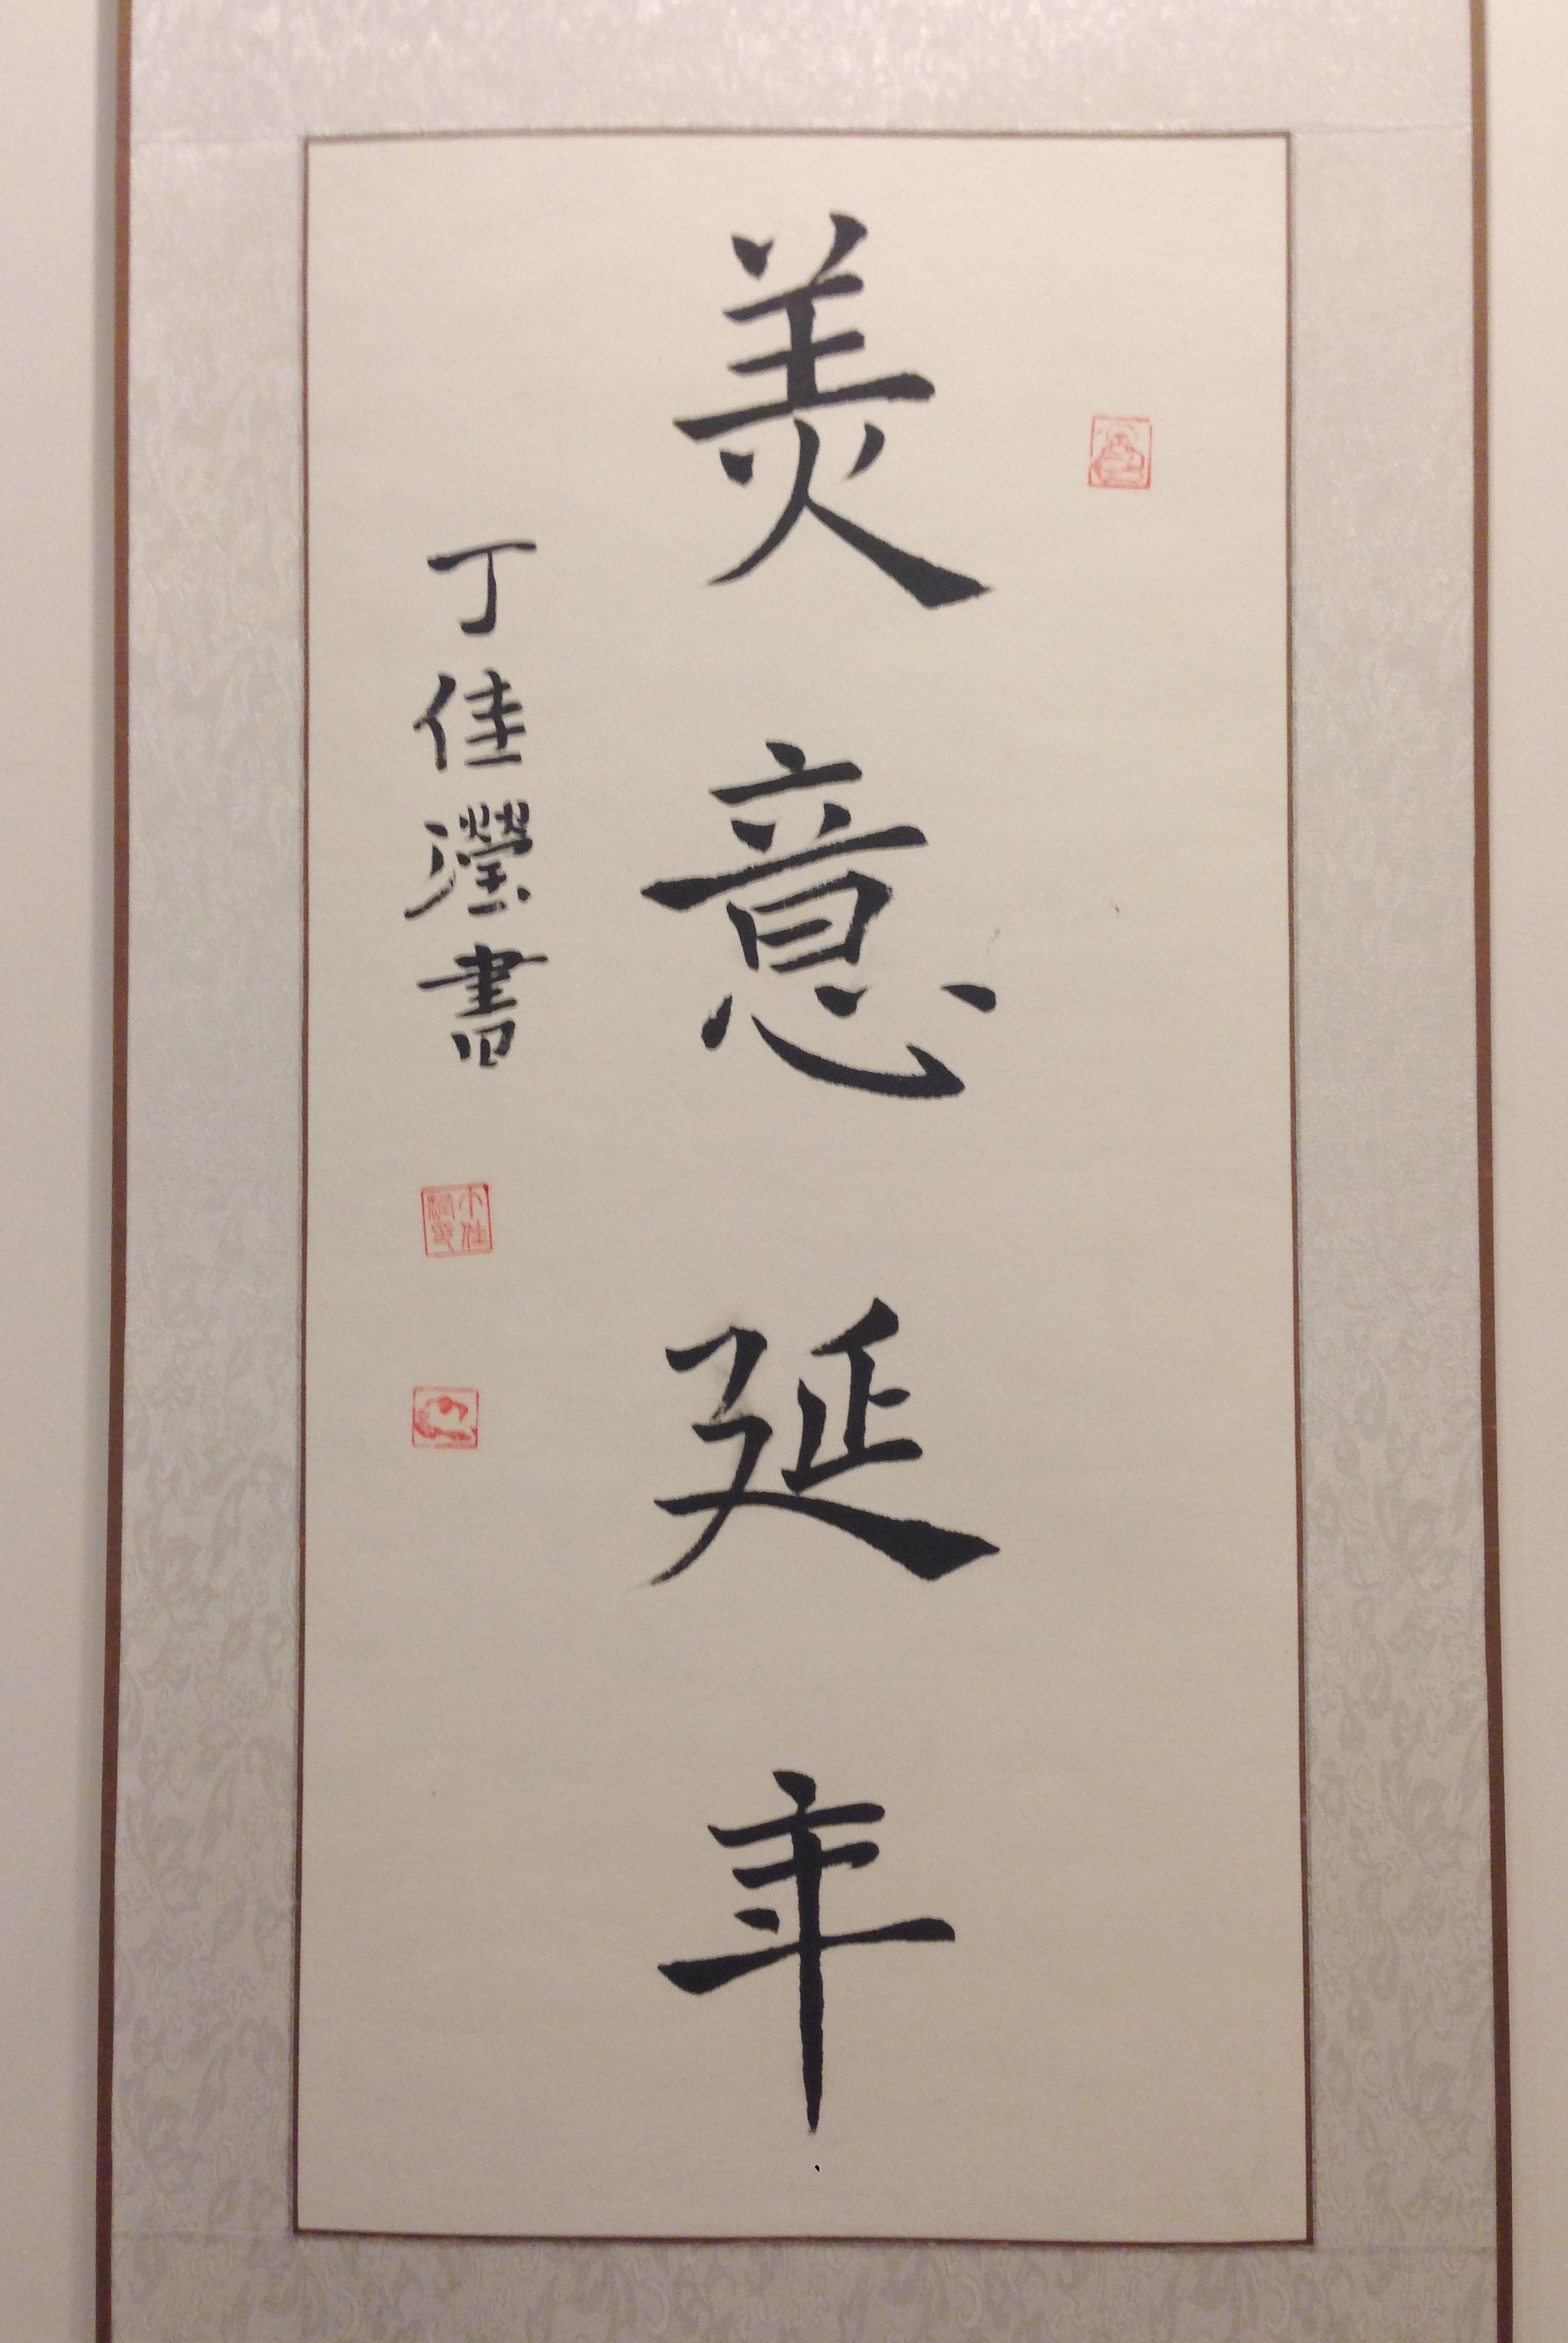 美意延年
丁佳瀅書